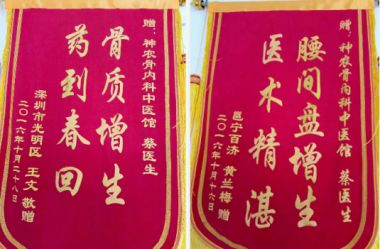 赠：神农骨内科中医馆 蔡医生
骨质增生
药到春回
深圳市光明区 王文 敬赠
二〇一六年十月二十八日
赠：神农骨内科中医馆 蔡医生
腰间盘增生
医术精湛
邕宁百济 黄兰梅 赠
二〇一六年十月